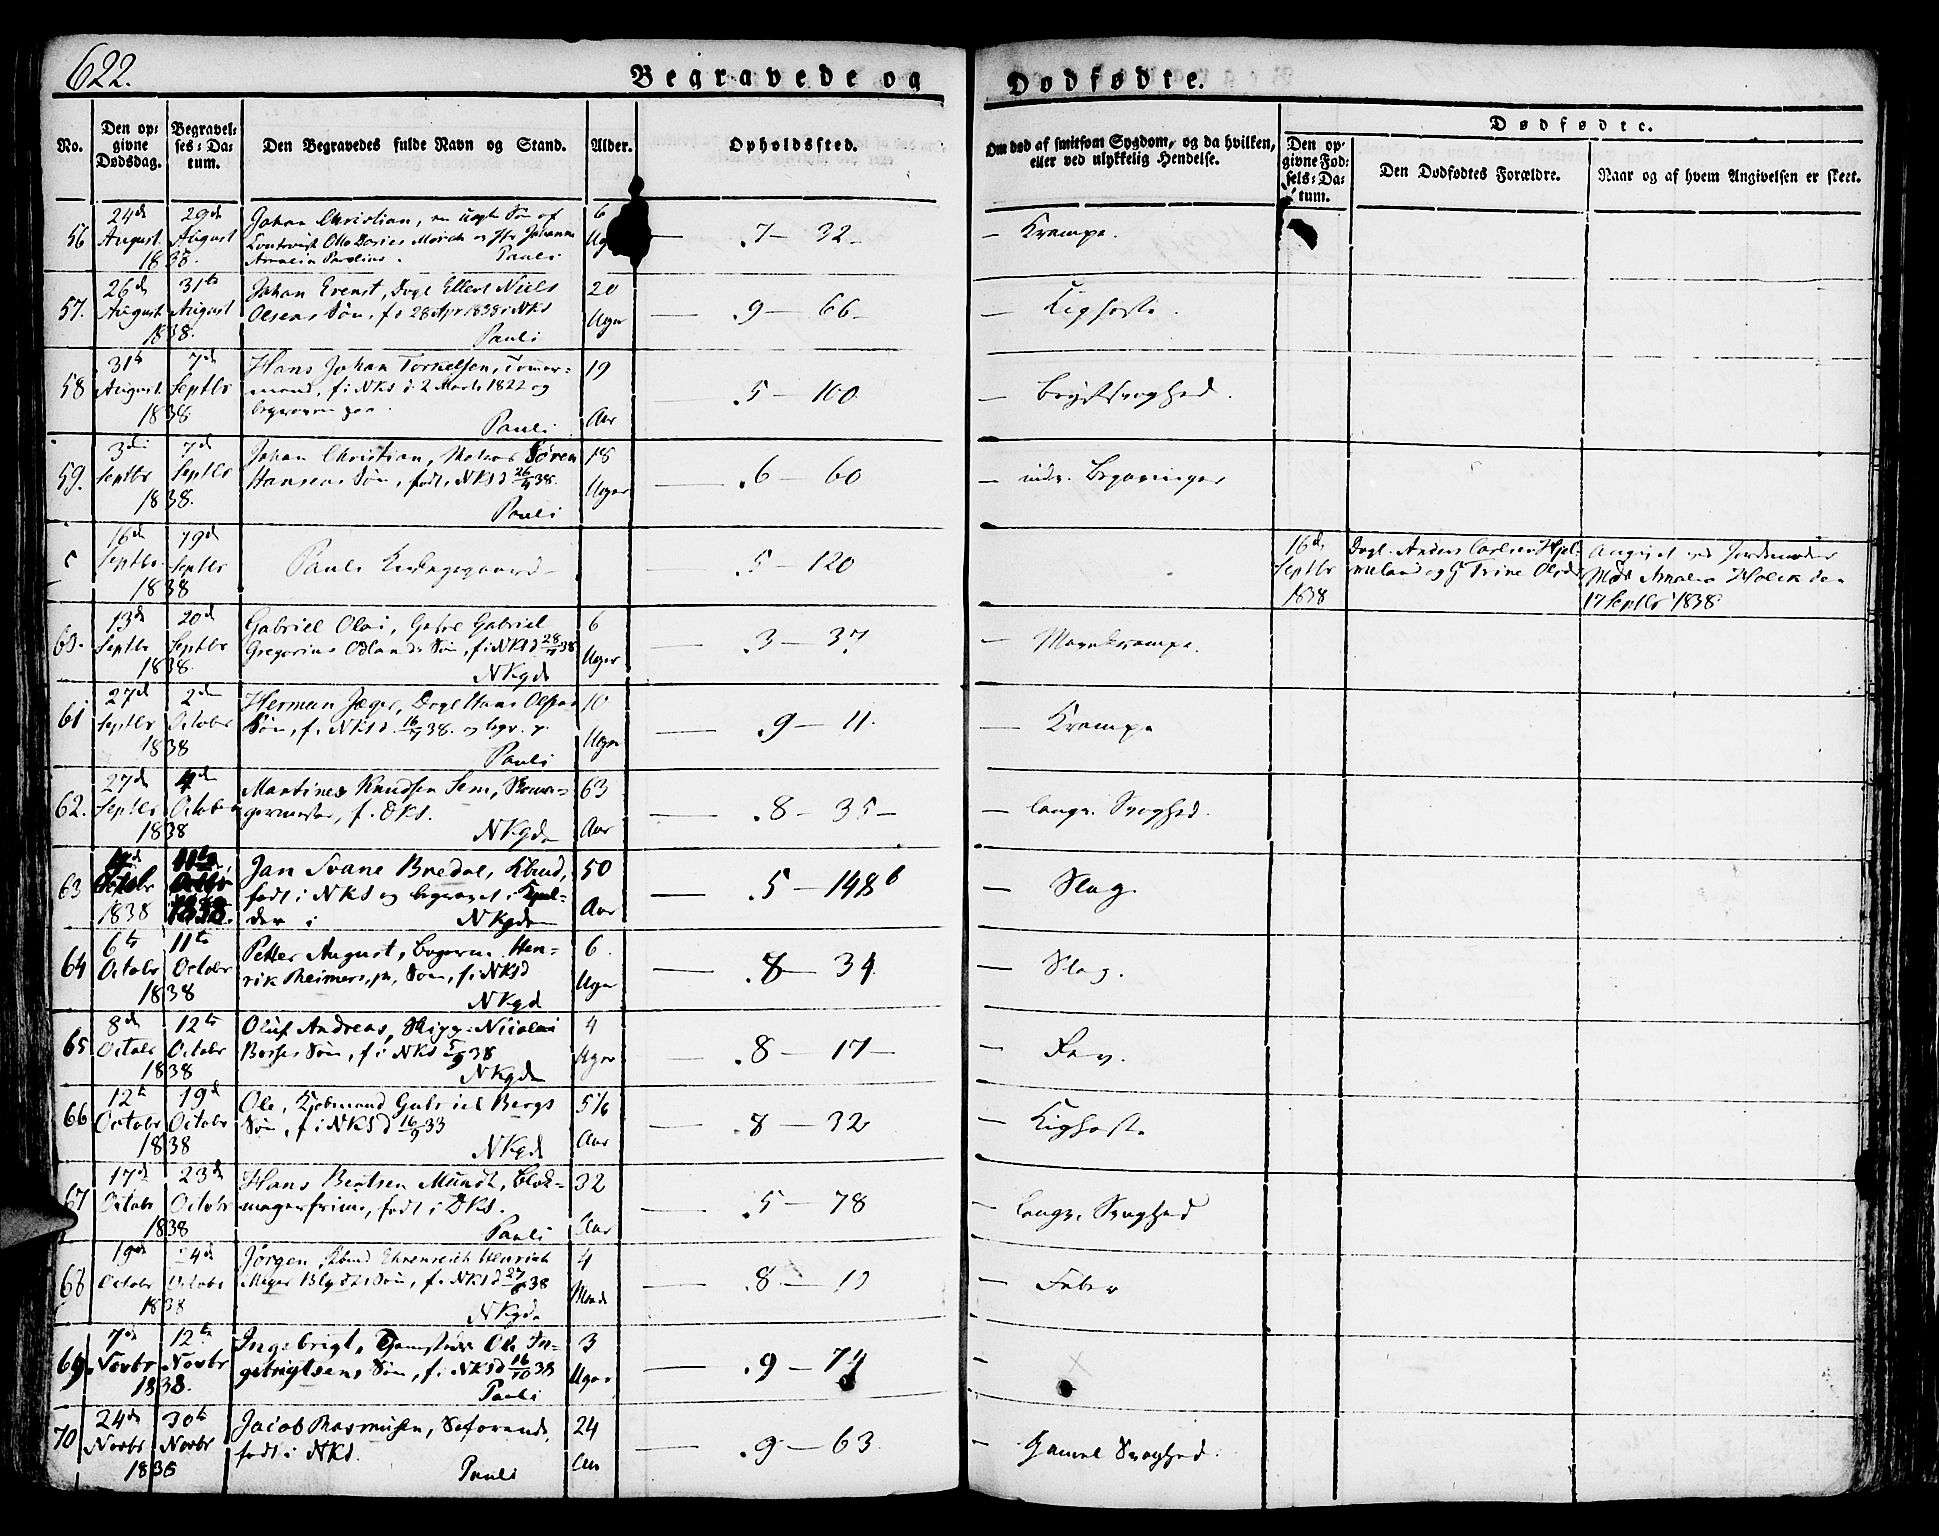 622.
Begravede og
Dødfødte.
No.
Den op:
givne
Dødsdag.
Begravel:
ses: Da:
tum.
Den Begravedes fulde Navn og Stand.
Alder.
Opholdssted.
Om død af smitsom Sygdom, og da hvilken,
eller ved ulykkelig Hendelse.
Dødfødte.
Den op:
givne Fød:
sels: Da:
tum.
Den Dødfødtes Forældre.
Naar og af hvem Angivelsen er skeet.
56
24de August 1838.
29de August
Johan Christian, en Søn af
Otto Mørch og Johanna
Amalia
Pauli
6 Uger
7 — 32
Krampe.
57.
26de August 1838.
31te August
Johan Ernst, Dagl Ellert Niels
Olsens Søn, f. 28 Apr 1838 i NKS
Pauli
20 Uger
9 — 66
Kighoste.
58
31te August 1838
7de Septbr
Hans Johan Torkelsen, Tømmer-
mand, f. i NKS d. 2 Marts 1822 og
begraven paa
Pauli
19 Aar
5 — 100
Brystsvaghed.
59.
3die Septbr 1838.
7de Septbr
Johan Christian, Søren
Hansens Søn, født i NKS d 26/4 38.
Pauli
18 Uger
6 — 60
indv.
16de Septbr 1838
19de Septbr
Pauli Kirkegaard
5 — 120
16de Septbr 1838
Dagl. Anders Carlsen
og Trine
Angivet ved Jordemoder
Mad Amalia Holck den
17 Septbr 1838
60.
13de Septbr 1838.
20de Septbr
Gabriel Olai, Gabriel
Gregorius Odlands Søn, f. i NKS d 28/7 38
NKgd
6 Uger
3 — 37
Mavekrampe.
61
27de Septbr 1838
2den Octobr
Herman Jæger, Dagl Hans Olsens
Søn, f. i NKS d. 16/7 38. og begr. p.
Pauli
10 Uger
9 — 11.
Krampe
62.
27de Septbr 1838
4de October
Martines Knudsen Sem,
f. i DKS.
NKgd
63 Aar
8 — 35
langv. Svaghed.
63
Octobr 1838
11te Octbr 1838.
Jan Svane Bredal,
født i NKS og begravet i
i NKgd
50 Aar
5 — 148b
Slag.
64
6te Octobr 1838
11te Octobr
Petter August, Hen-
rik Reimers, jn, Søn, f. i NKS d
NKgd
6. Uger
8 — 34
Slag.
65
8de Octobr 1838
12te Octobr
Oluf Andreas, Nicolai
Søn, f. i NKS 5/9 38
NKgd
4 Uger
8 — 17
66
12te Octobr 1838
19de Octobr
Ole, Kjøbmand Gabriel Bergs
Søn, f. i NKS d 16/9 33
NKgd
5 1/6 Aar
8 — 32
Kighoste
67
17de Octobr 1838
23de Octobr
Hans Bentsen Mundt, Blok-
magersvend, født i DKS.
Pauli
32 Aar
5 — 78
langv. Svaghed
68
19de Octobr 1838
24de Octobr
Jørgen, Ehrenreich Henrich
Meyer Søn, f. i NKS d 27/6 38
NKgd
4 Maan
8 —
Feber
69
7de Novbr 1838.
12te Novbr
Ingebrigt, Ole In-
gebrigtsens Søn, f. i NKS d 16/10 38
Pauli
3 Uger
9 — 74
70
24de Novbr 1838
30te Novbr
Jacob Rasmussen, Søfarende,
født i NKS.
Pauli
24 Aar
9 — 63
Svaghed.